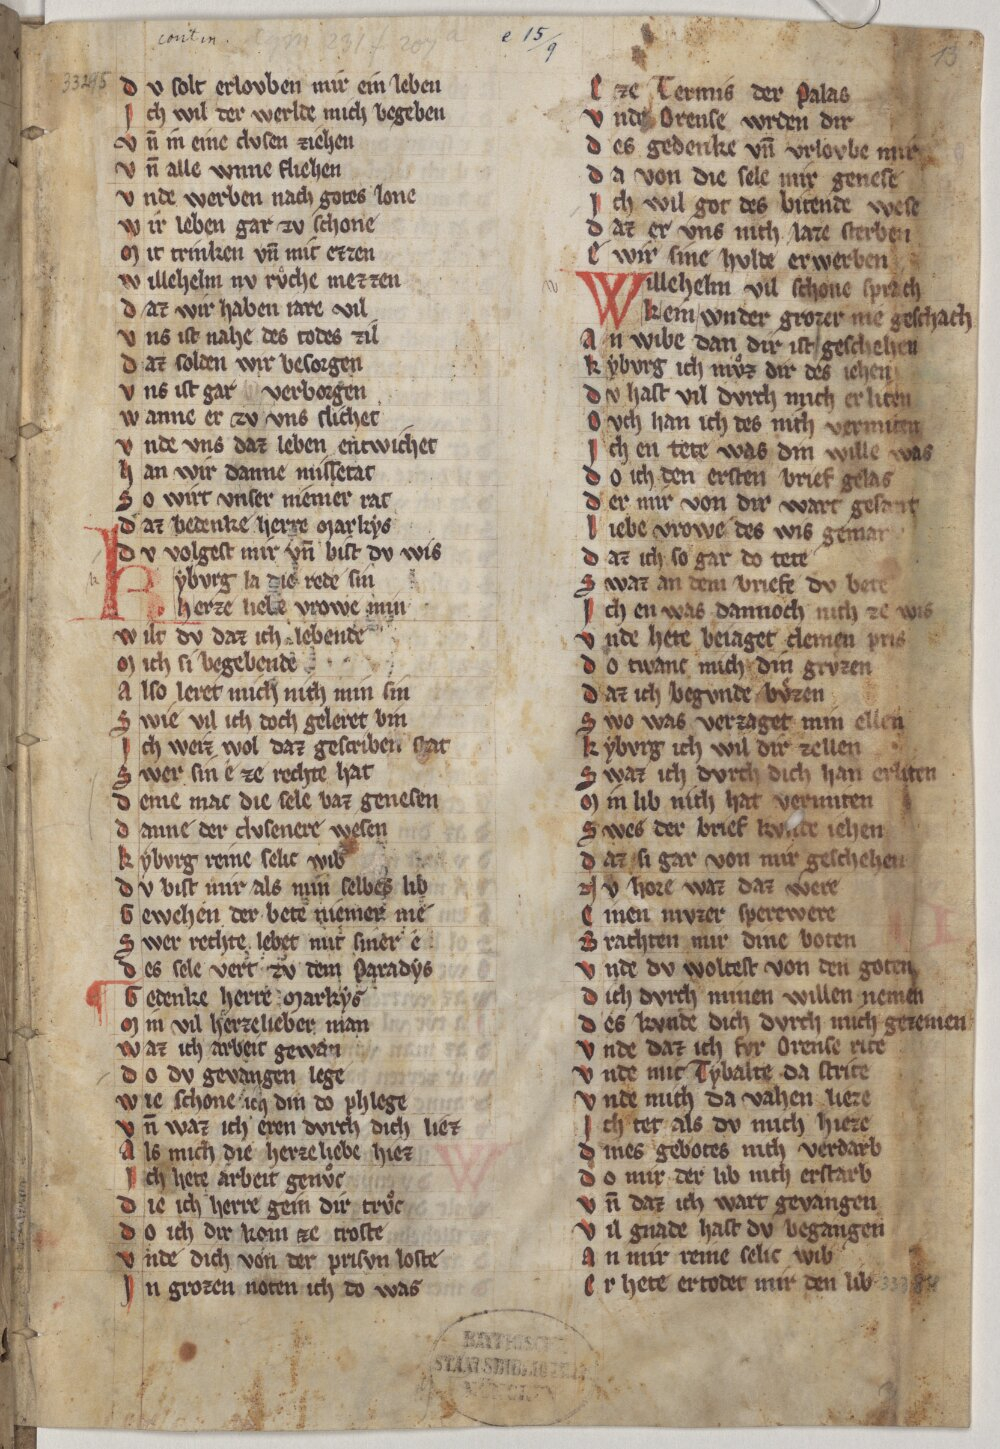 contin.
e 15/9
13
33245
D v solt erlovben mir ein leben
I ch wil der werlde mich begeben
V n̄ in eine clvsen ziehen
V n̄ alle wnne fliehen
V nde werben nach gotes lone
W ir leben gar zv schone
M it trinken vn̄ mit ezzen
W illehelm nv rvͦche mezzen
D az wir haben iare vil
V ns ist nahe des todes zil
D az solden wir besorgen
V ns ist gar verborgen
W anne er zv vns slichet
V nde vns daz leben entwichet
H an wir danne missetat
S o wirt vnser niemer rat
D az bedenke herre Markys
D v volgest mir vn̄ bist dv wis
K ybvrg la die rede sin
herze liebe vrowe min
W ilt dv daz ich lebende
M ich si begebende
A lso leret mich nich min sin
S wie vil ich doch geleret bin
I ch weiz wol daz gescriben stat
S wer sin e ze rechte hat
D eme mac die sele baz genesen
D anne der clvsenere wesen
K ybvrg reine selic wib
D v bist mir als min selbes lib
G ewehen der bete niemer me
S wer rechte lebet mit siner e
D es sele vert zv dem Paradys
G edenke herre Markys
M in vil herzelieber man
W az ich arbeit gewan
D o dv gevangen lege
W ie schone ich din do phlege
V n̄ waz ich eren dvrch dich liez
A ls mich die herzeliebe hiez
I ch hete arbeit genvͦc
D ie ich herre gein dir trvͦc
D o ich dir kom ze troste
V nde dich von der prisvn loste
I n grozen noten ich do was
E ze Termis der Palas
V nde Orense wrden dir
D es gedenke vn̄ vrlovbe mir
D a von die sele mir genese
I ch wil got des bitende wese
D az er vns nich laze sterben
E wir sine hvlde erwerben
W illehelm vil schone sprach
kein wnder grozer nie geschach
A n wibe dan dir ist geschehen
K ybvrg ich mvͦz dir des iehen
D v hast vil dvrch mich erliten
O vch han ich des nich vermiten
I ch en tete was din wille was
D o ich den ersten brief gelas
D er mir von dir wart gesant
L iebe vrowe des wis gemant
D az ich so gar do tete
S waz an dem briefe dv bete
I ch en was dannoch nich ze wis
V nde hete beiaget cleinen pris
D o twanc mich din grvzen
D az ich begvnde bvͦzen
S wo was verzaget min ellen
K ybvrg ich wil dir zellen
S waz ich dvrch dich han erliten
M in lib nich hat vermiten
S wes der brief kvnde iehen
D az si gar von mir geschehen
N v hore waz daz were
E inen mvzer sperewere
B rachten mir dine boten
V nde dv woltest von den goten
D ich dvrch minen willen nemen
D es kvnde dich dvrch mich gezemen
V nde daz ich fvr Orense rite
V nde mit Tybalte da strite
V nde mich da vahen lieze
I ch tet als dv mich hieze
D ines gebotes nich verdarb
D o mir der lib nich erstarb
V n̄ daz ich wart gevangen
V il gnade hast dv begangen
A n mir reine selic wib
E r hete ertodet mir den lib
BAYERISCHE
STAATSBIBLIOTHEK
MÜNCHEN